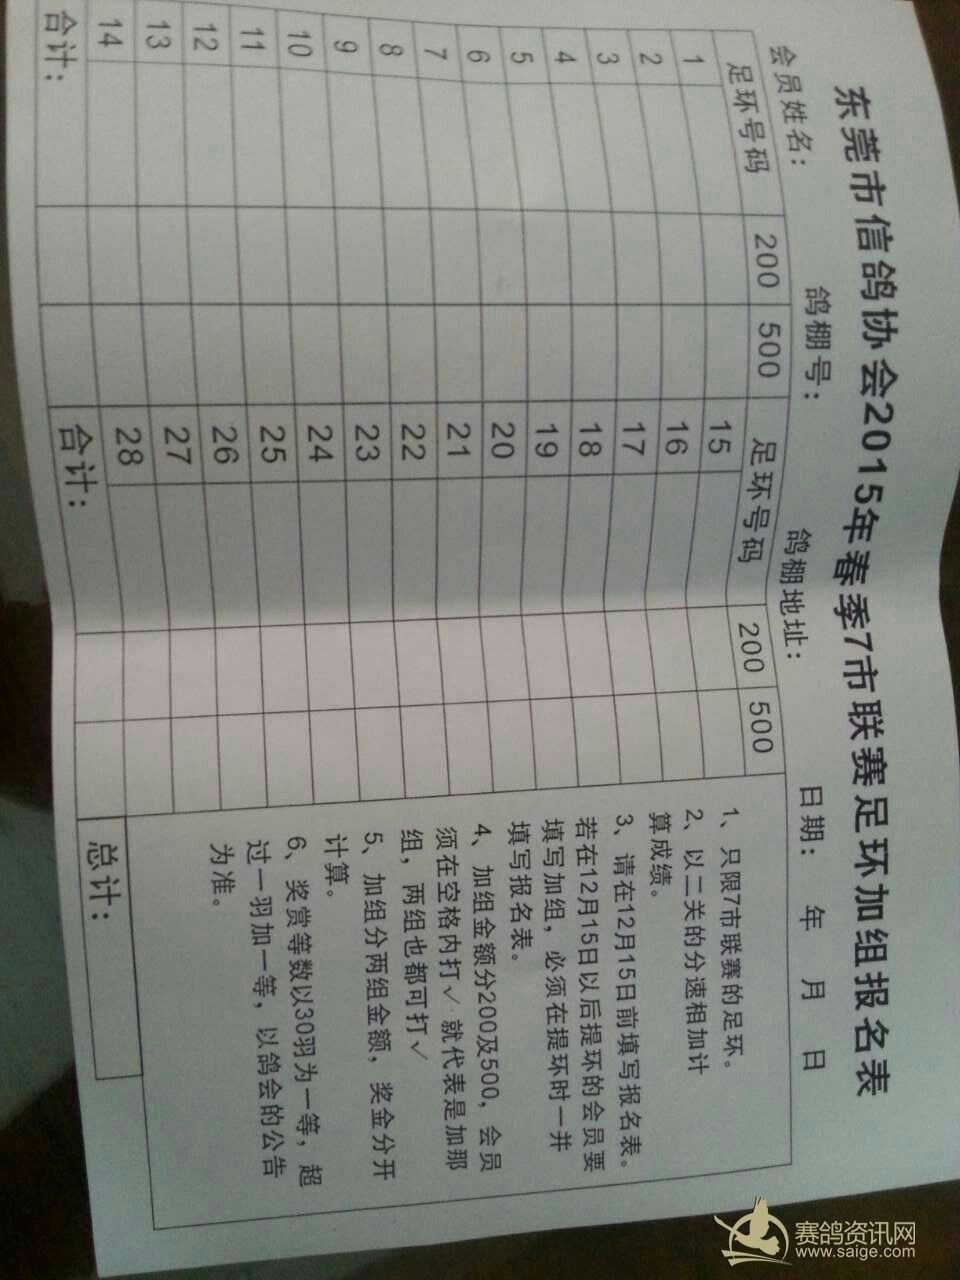 东莞市信鸽协会2015年春季7市联赛足环加组报名表
会员姓名： 鸽棚号： 鸽棚地址： 日期： 年 月 日
足环号码 200 500 足环号码 200 500
1 15
2 16
3 17
4 18
5 19
6 20
7 21
8 22
9 23
10 24
11 25
12 26
13 27
14 28
合计： 合计： 总计：
1、只限7市联赛的足环。
2、以二关的分速相加计
算成绩。
3、请在12月15日前填写报名表。
若在12月15日以后提环的会员要
填写加组，必须在提环时一并
填写报名表。
4、加组金额分200及500，会员
须在空格内打√就代表是加那
组，两组也都可打√
5、加组分两组金额，奖金分开
计算。
6、奖赏等数以30羽为一等，超
过一羽加一等，以鸽会的公告
为准。
赛鸽资讯网
www.saige.com